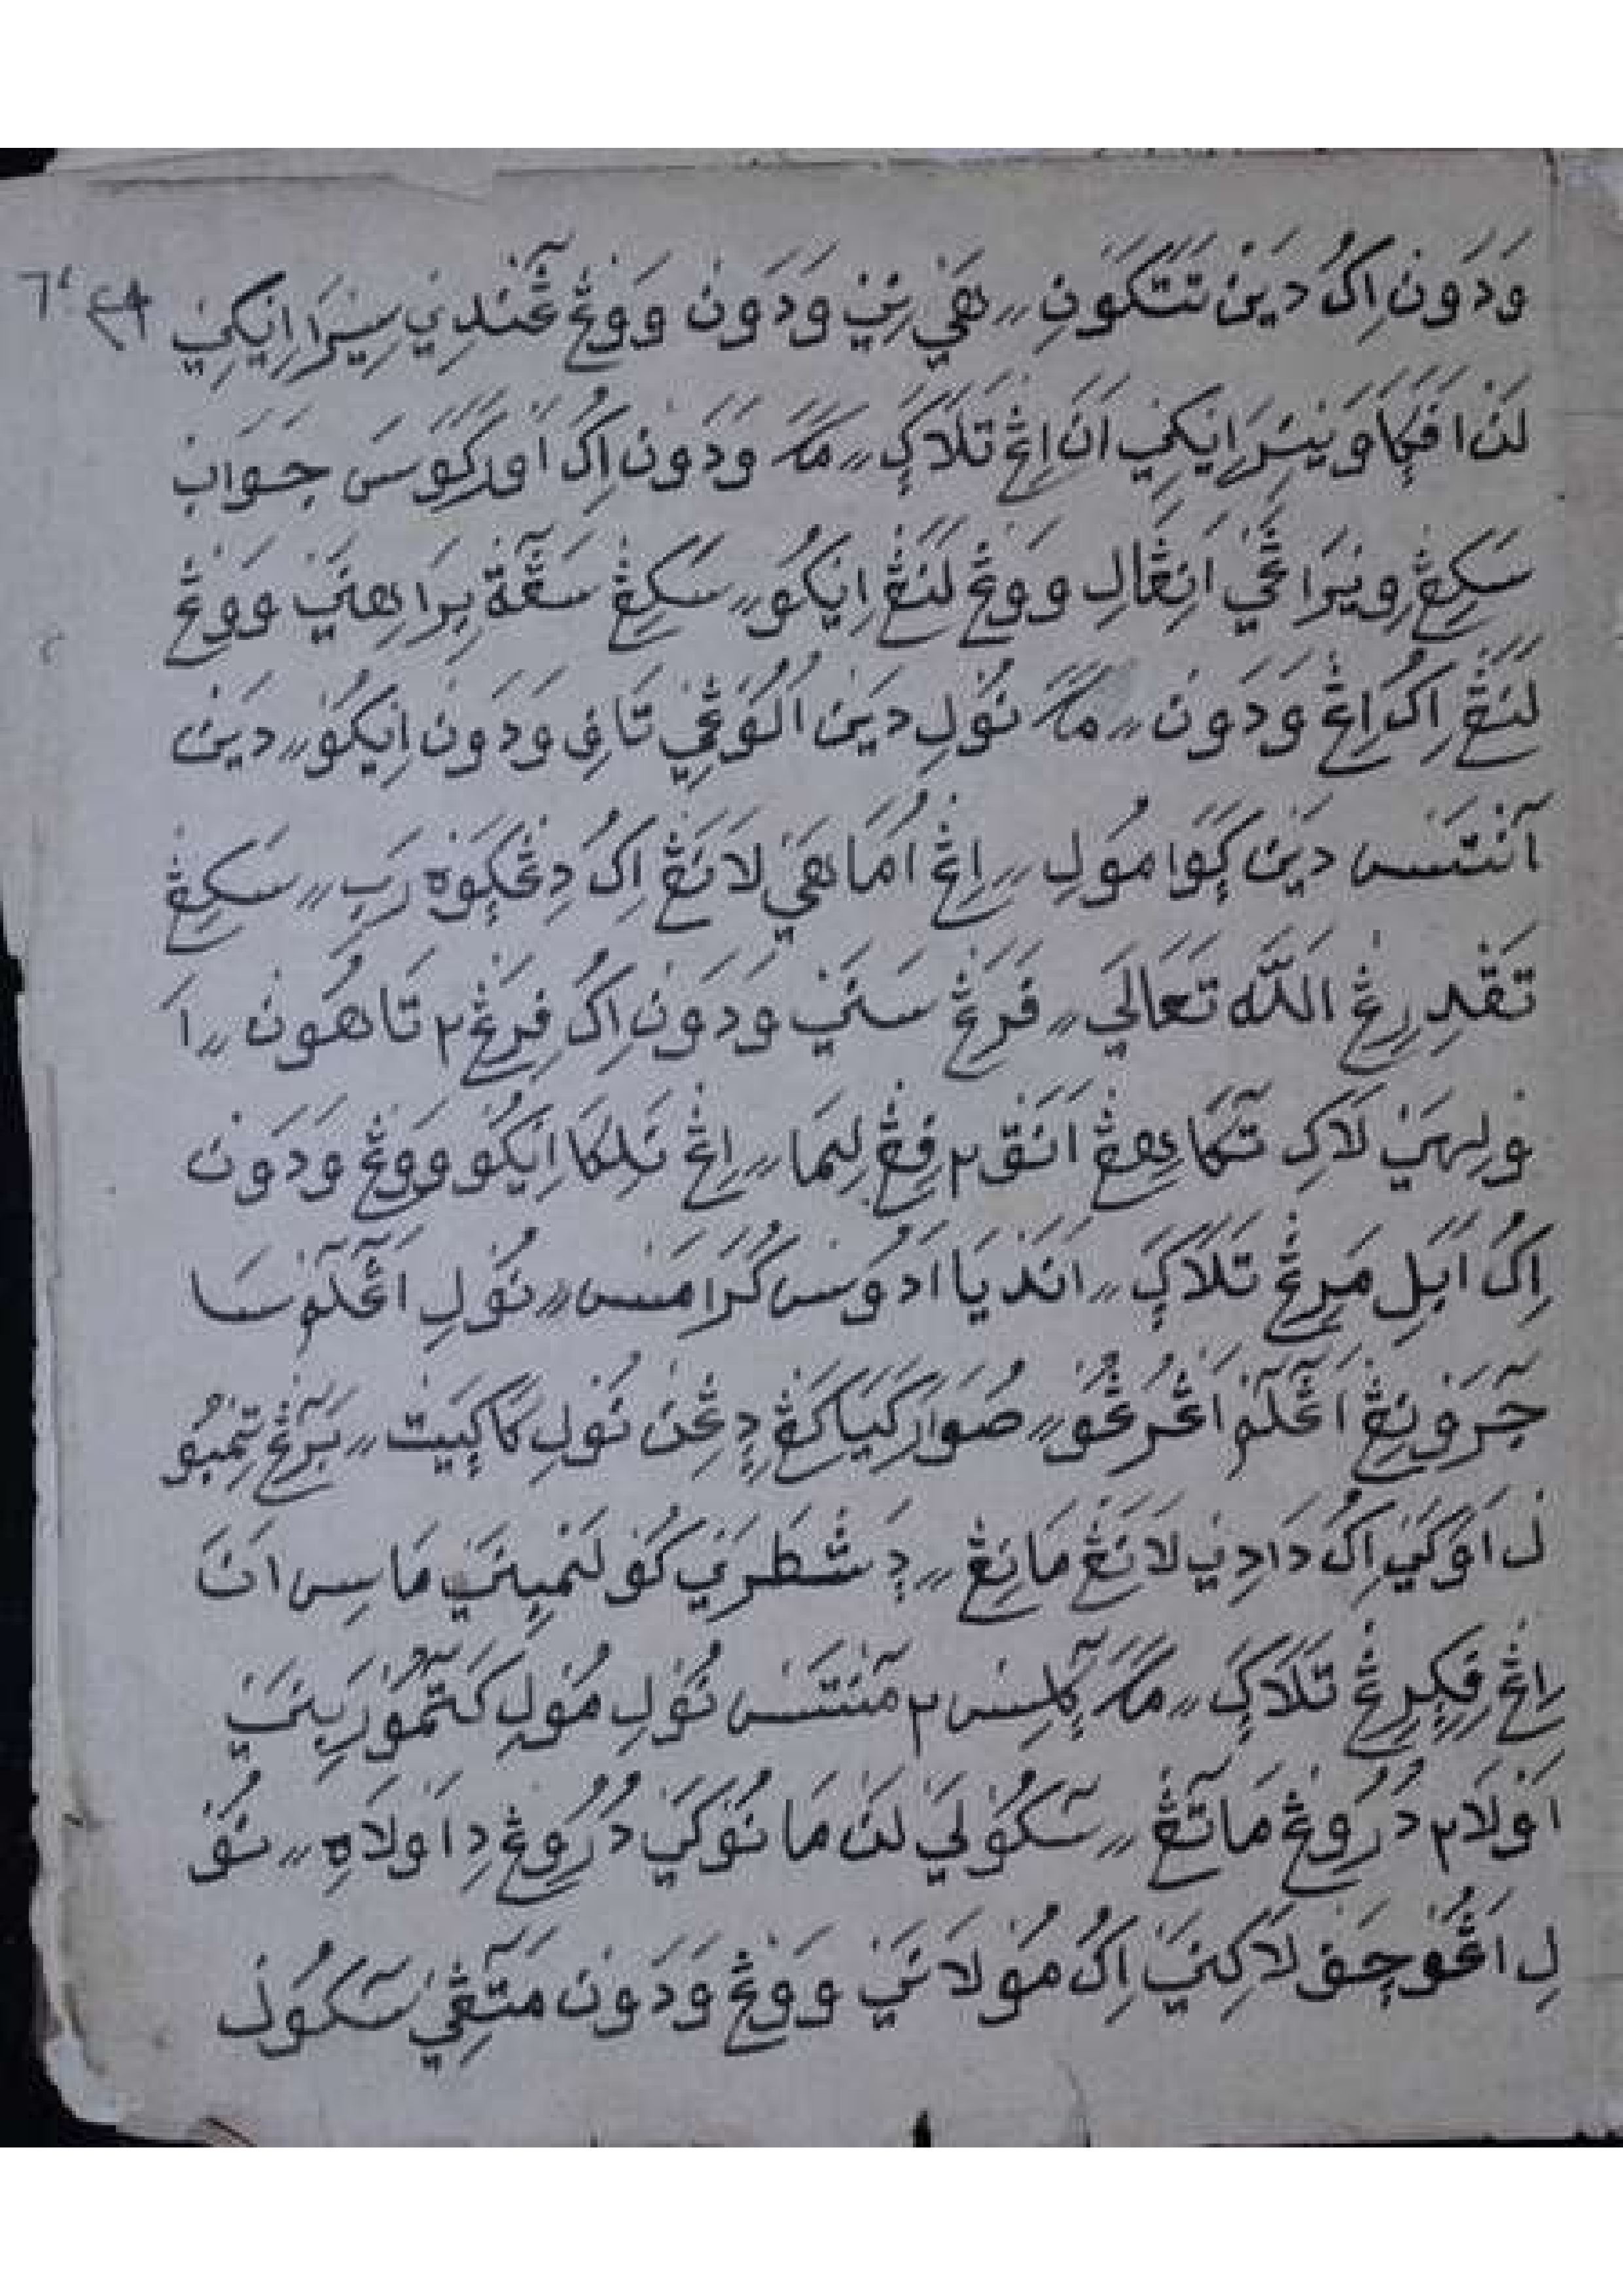 وَدَوَن اِكُ دَيَن تَتَكَوَنِ ٫٫ هَيَ نِيَ وَدَوَن وَوَڠ عَٓندِيَ سِيَرَا اِيكِيَ
لَن اَڤَكَا وَنيَسِرَا اِيكِيَ اَنَ اِڠ تَلَاكَ ٫٫ مَكَ وَدَوَن اِكُ اَوَركَوَسَ جَوَاب
سَكِڠ وِيَرَاڠَيَ اَنِڠَالِ وَوَڠ لَنَڠ اِيكُو ٫٫ سَكِڠ سَڠَٓة بِيرَاهِنَيَ وَوَڠ
لَنَڠ اِكُ اِڠ وَدَوَن ٫٫ مَكَ نُوَلِ دَيَن الُوَڠِيَ تَاڤِ وَدَوَن اِيكُو ٫٫ دَيَن
آنتَس دَيَن ڮَوَا مُولِ ٫٫ اِڠ اُمَاهَيَ لَانَڠ اِكُ دِڠَڮَوَه رَبِ ٫٫ سَكِڠ
تَقدِرِڠ اَللّٰه تَعَالَي ٫٫ فَرَڠ سَنَيَ وَدَوَن اِكُ فِرَڠ٢ تَاهُون ٫٫ اَ
وَلِهَيَ لَاكِ تَٓكَا عِڠ اَنَق٢ فِڠ لِيمَا ٫٫ اِڠ نَلِكَا اِيكُو وَوَڠ وَدَوَن
اِكُ اَيَلِ مَرِڠ تَلَاكَ ٫٫ اَندَيَا اَدُوَس كُرَامَس ٫٫ نُوَلِ اَڠَٓلَٓوسَا
جَٓرَوَنِڠ اَڠَٓلَٓو اَڠرُڠُو ٫٫ صُوَارَ كَيَاكَڠ دِڠِن نُوَلِ كَاڮَيَت ٫٫ بَرَٓڠ تِمبُو
ل اَوَكَيَ اِكُ دَادِيَ لَانَڠ مَانِڠ ٫٫ دِ شَطَرَيَ كُولَمبِنَيَ مَاسِ اَنَ
اِڠ فِڮِرِڠ تَلَاكَ ٫٫ مَكَ ڮَٓلِس٢ مَٓنتَس نُوَلِ مُولِهِ كَتَٓمُو رَبِنَيَ
اَوَلَا٢ دُرُوڠ مَاتَٓڠ ٫٫ سَٓكُوَلَيَ لَن مَانُوَكَيَ دُرُوڠ دِاَوَلَاهِ ٫٫ نُوَ
لِ اَڠُوچَڤ لَاكِنَيَ اِكُ مُولَانَيَ وَوَڠ وَدَوَن مَتَٓڠِيَ سَٓكُوَل